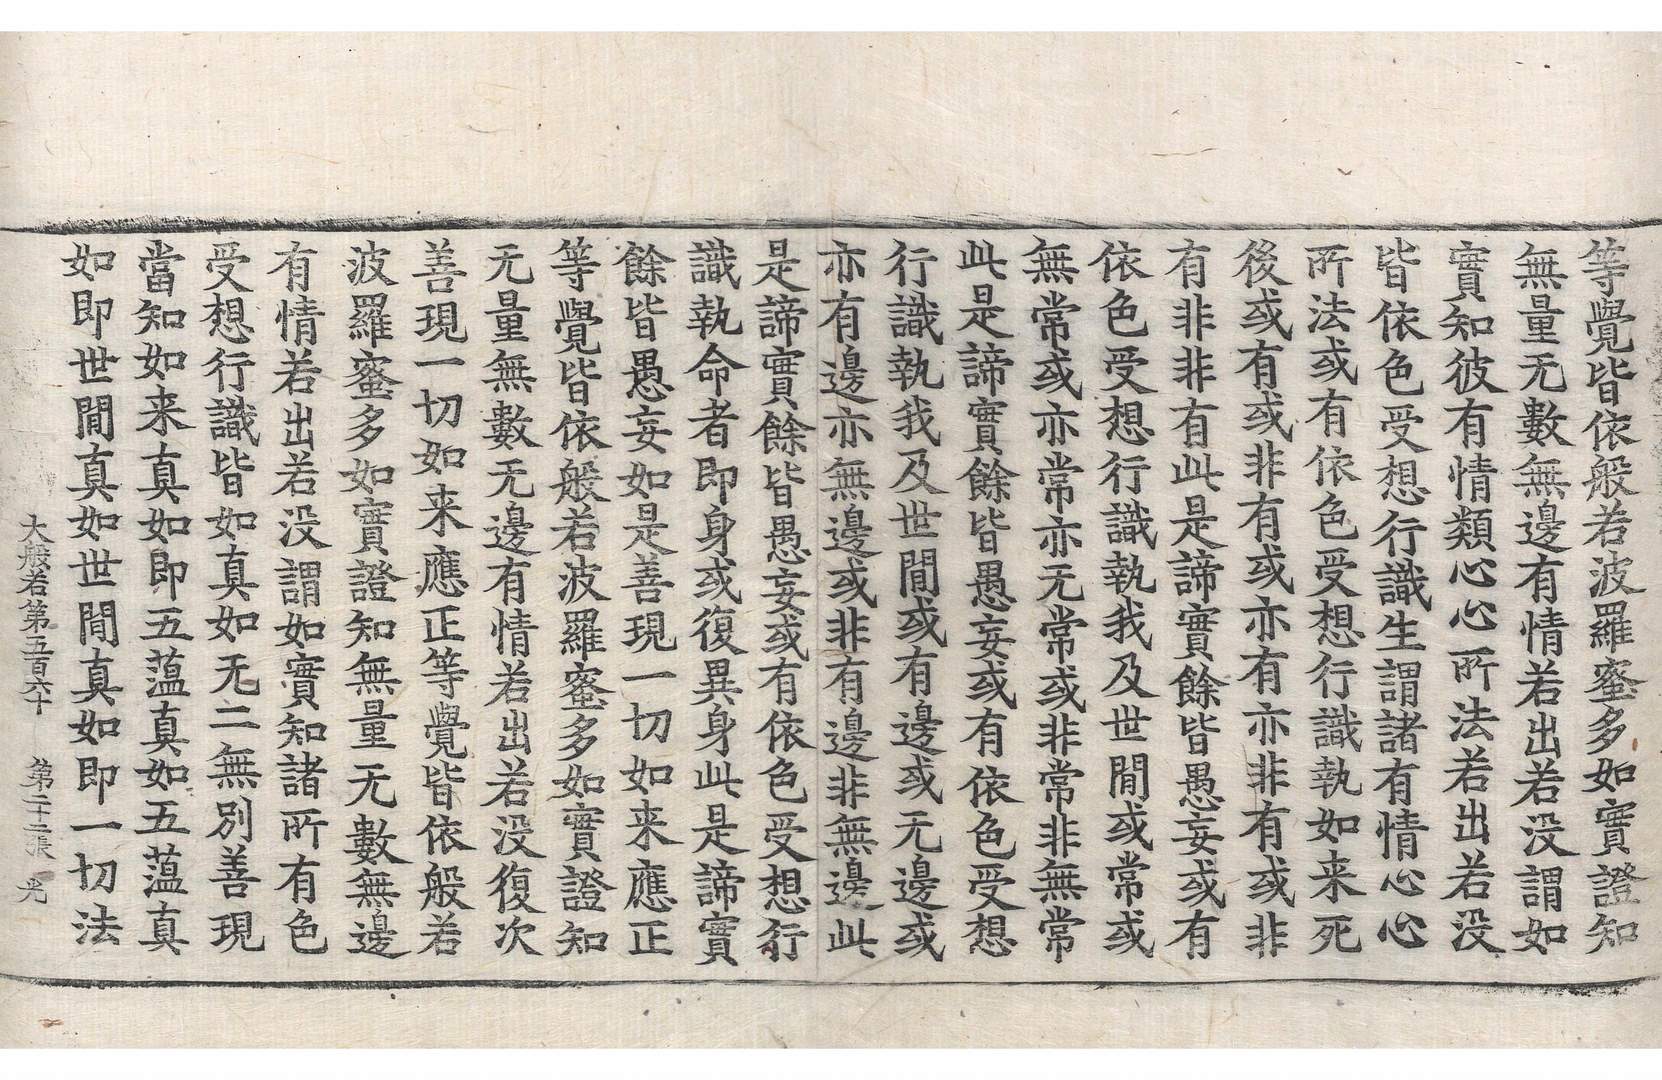 等覺皆依般若波羅蜜多如實證知
無量无數無邊有情若出若没謂如
實知彼有情類心心所法若出若没
皆依色受想行識生謂諸有情心心
所法或有依色受想行識執如来死
後或有或非有或亦有亦非有或非
有非非有此是諦實餘皆愚妄或有
依色受想行識執我及世間或常或
無常或亦常亦无常或非常非無常
此是諦實餘皆愚妄或有依色受想
行識執我及世間或有邊或无邊或
亦有邊亦無邊或非有邊非無邊此
是諦實餘皆愚妄或有依色受想行
識執命者即身或復異身此是諦實
餘皆愚妄如是善現一切如来應正
等覺皆依般若波羅蜜多如實證知
无量無數无邊有情若出若没復次
善現一切如来應正等覺皆依般若
波羅蜜多如實證知無量无數無邊
有情若出若没謂如實知諸所有色
受想行識皆如真如无二無別善現
當知如来真如即五蕰真如五蕰真
如即世間真如世間真如即一切法
大般若第五百六十 第二十二張 光